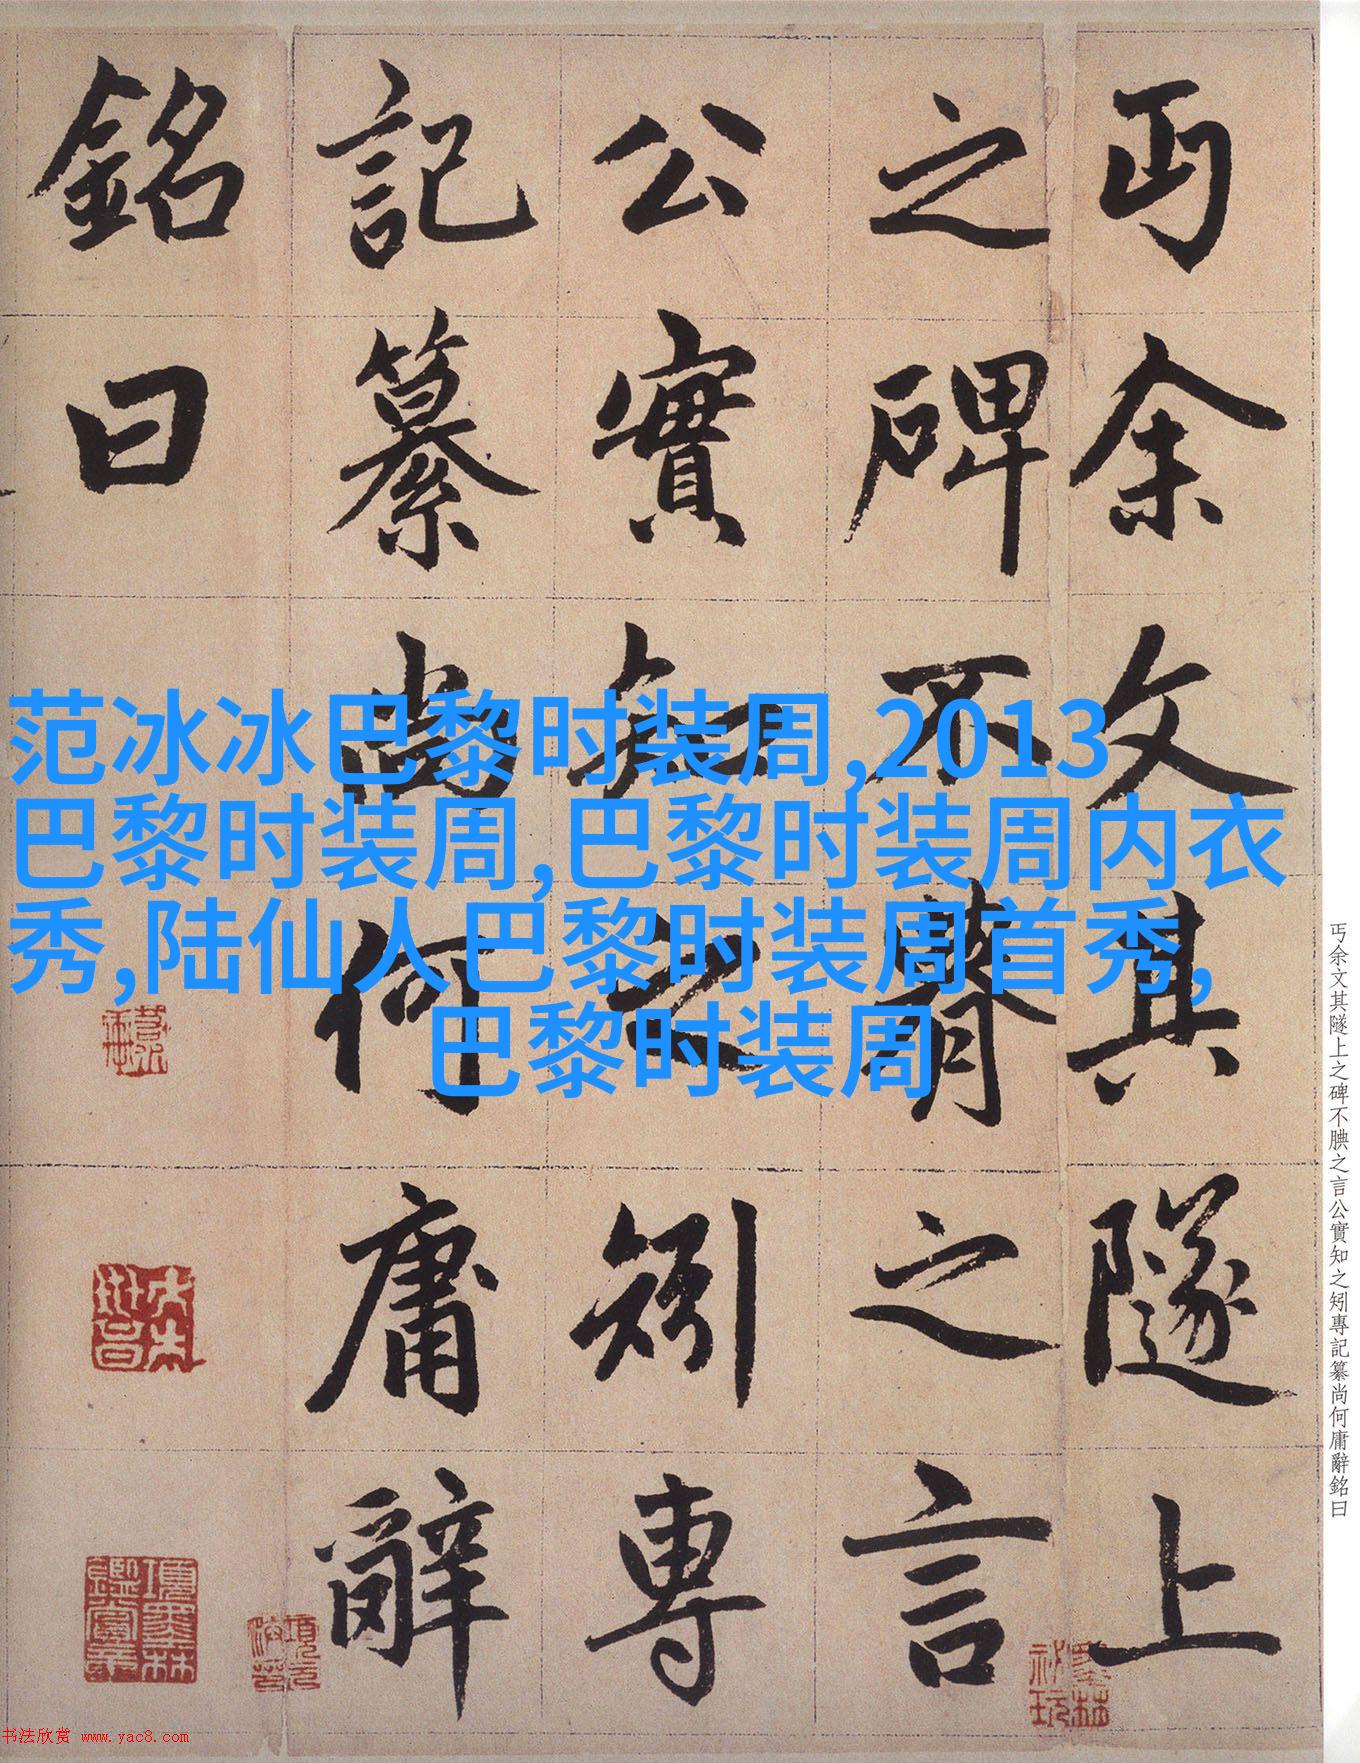 丐余文其隧上
之碑不腆之言
公實知之矧專
記纂尚何庸辭
銘曰
范冰冰巴黎时装周,2013
巴黎时装周,巴黎时装周内衣
秀,陆仙人巴黎时装周首秀,
巴黎时装周
丐余文其隧上之碑不腆之言公實知之矧專記纂尚何庸辭銘曰
項墨林鑑賞章
墨林祕玩
书法欣赏 www.yac8.com